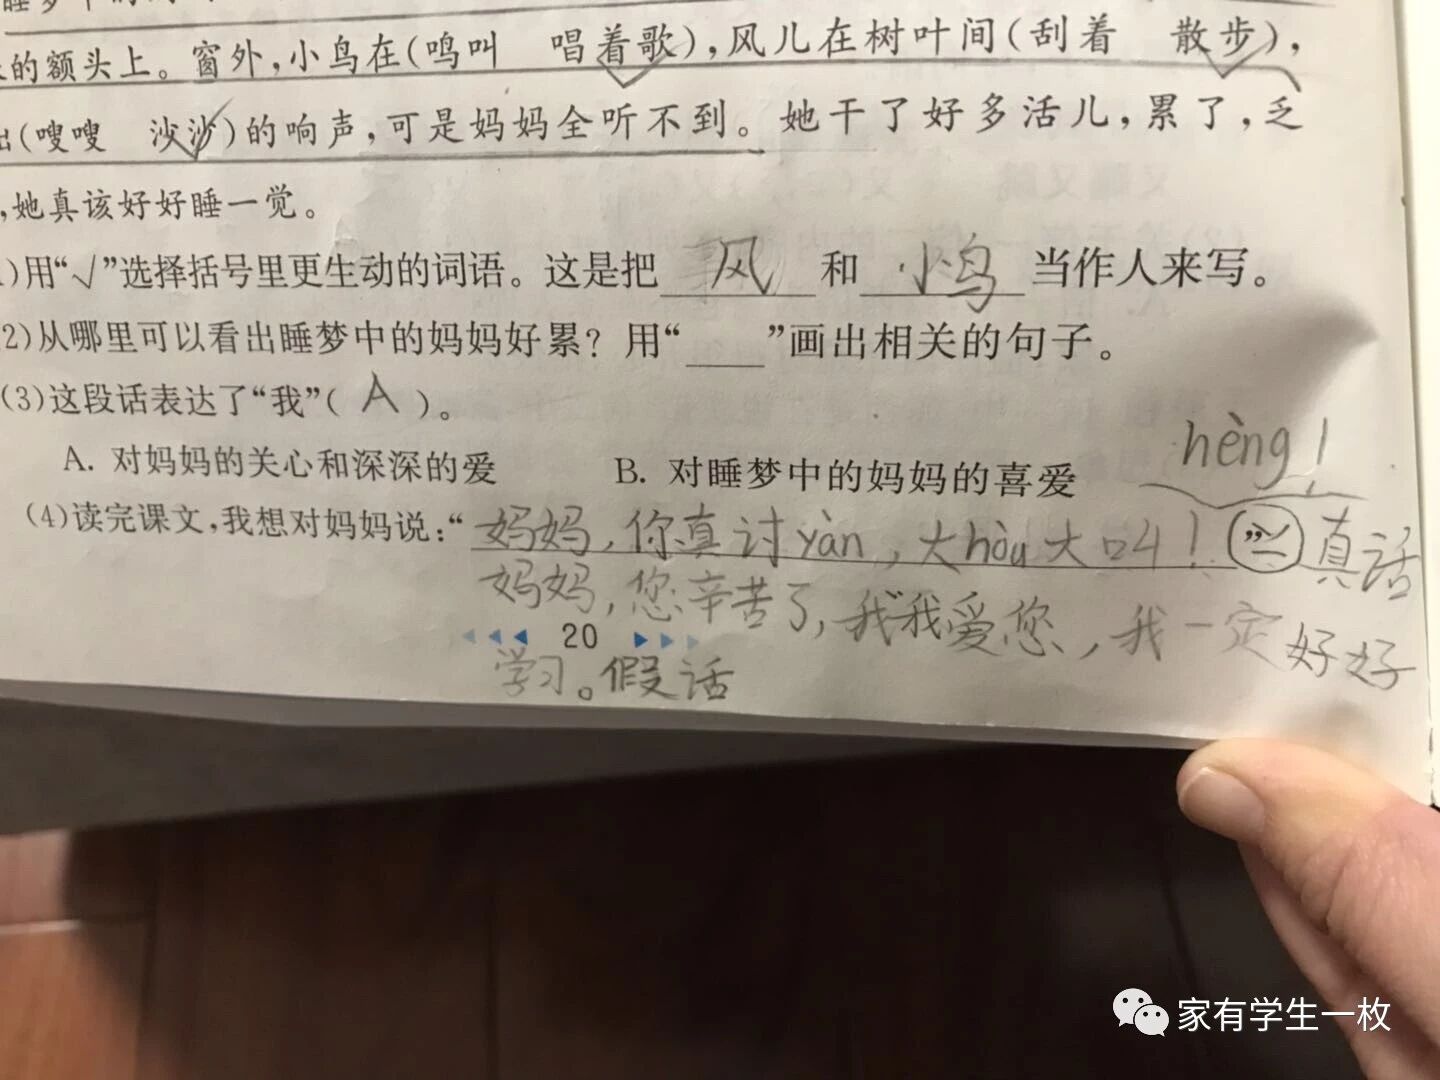 睡梦中的
的额头上。窗外,小鸟在(鸣叫 唱着歌),风儿在树叶间(刮着 散步),
出(嗖嗖 沙沙)的响声,可是妈妈全听不到。她干了好多活儿,累了,乏
,她真该好好睡一觉。
)用“√”选择括号里更生动的词语。这是把 风 和 小鸟 当作人来写。
2)从哪里可以看出睡梦中的妈妈好累?用“___”画出相关的句子。
(3)这段话表达了“我”( A )。
A. 对妈妈的关心和深深的爱 B. 对睡梦中的妈妈的喜爱
hèng!
(4)读完课文,我想对妈妈说:“妈妈,你真讨yàn,大hǒu大叫! 真话
妈妈,您辛苦了,我我爱您,我一定好好
20
学习。假话
家有学生一枚